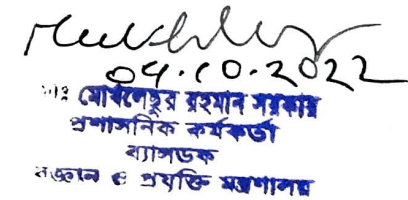 04.10.2022
মোঃ মোখলেছুর রহমান সরকার
প্রশাসনিক কর্মকর্তা
ব্যান্সডক
বিজ্ঞান ও প্রযুক্তি মন্ত্রণালয়